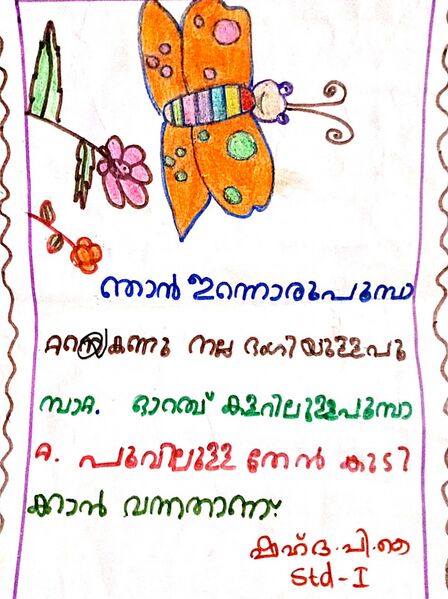 ഞാൻ ഇന്നൊരുപൂമ്പാ
റ്റയെകണ്ടു നല്ല ഭംഗിയുള്ളപൂ
മ്പാറ്റ. ഓറഞ്ച് കളറിലുള്ളപൂമ്പാ
റ്റ. പൂവിലുള്ള തേൻ കുടി
ക്കാൻ വന്നതാണ്.
ഷഹ്ദ.പി.ഐ
Std-I